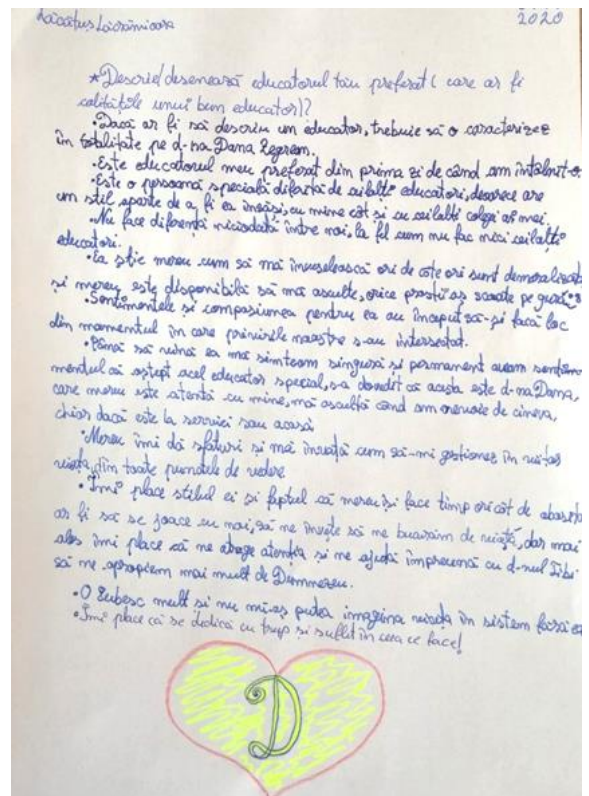 Lăcătuș Lăcrămioara 2020
*Descrie/desenează educatorul tău preferat (care ar fi
calitățile unui bun educator)?
•Dacă ar fi să descriu un educator, trebuie să o caracterizez
în totalitate pe d-na Dana
•Este educatorul meu preferat din prima zi de când am întâlnit-o.
•Este o persoană specială diferită de ceilalți educatori, deoarece are
un stil aparte de a fi ea însăși, cu mine cât și cu ceilalți colegi ai mei.
•Nu face diferență niciodată între noi, la fel cum nu fac nici ceilalți
educatori.
•Ea știe mereu cum să mă înveselească ori de câte ori sunt demoralizată
și mereu este disponibilă să mă asculte, orice prostii aș scoate pe gură
•Sentimentele și compasiunea pentru ea au început să-și facă loc
din momentul în care privirile noastre s-au intersectat.
•Până să vină ea mă simțeam singură și permanent aveam sentim
mentul că aștept acel educator special, s-a dovedit că acesta este d-na Dana,
care mereu este atentă cu mine, mă ascultă când am nevoie de cineva,
chiar dacă este la servici sau acasă
•Mereu îmi dă sfaturi și mă învață cum să-mi gestionez în viitor
viața, din toate punctele de vedere
•Îmi place stilul ei și faptul că mereu își face timp oricât de obosită
ar fi să se joace cu noi, să ne învețe să ne bucurăm de viață, dar mai
ales îmi place că ne atrage atenția și ne ajută împreună cu d-nul Tibi
să ne apropiem mai mult de Dumnezeu.
•O Iubesc mult și nu mi-aș putea imagina viața în sistem fără ea
•Îmi place că se dedică cu trup și suflet în ceea ce face!
D